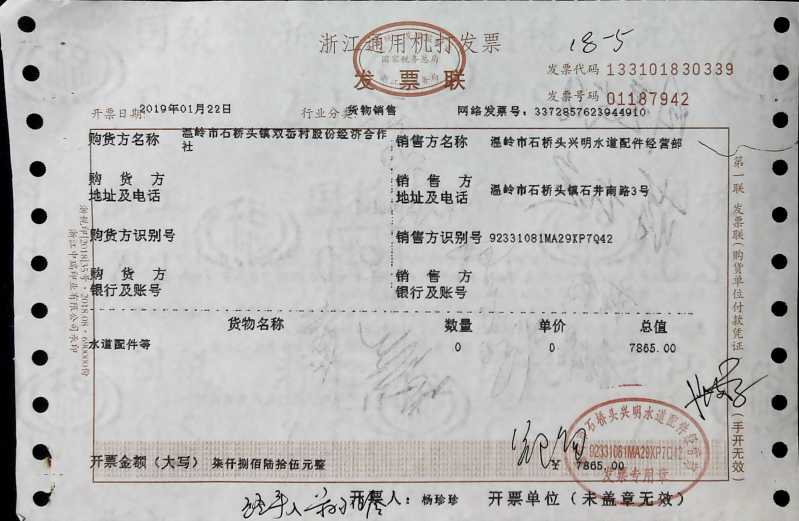 18-5
浙江通用机打发票
国家税务总局
发票联
发票代码 133101830339
发票号码 01187942
开票日期 2019年01月22日 行业分类 货物销售 网络发票号: 3372857623944910
购货方名称 温岭市石桥头镇双岙村股份经济合作社
销售方名称 温岭市石桥头兴明水道配件经营部
购货方地址及电话
销售方地址及电话 温岭市石桥头镇石井南路3号
购货方识别号
销售方识别号 92331081MA29XP7Q42
购货方银行及账号
销售方银行及账号
货物名称 数量 单价 总值
水道配件等 0 0 7865.00
开票金额(大写) 柒仟捌佰陆拾伍元整 7865.00
石桥头兴明水道配件经营部
92331081MA29XP7Q42
发票专用章
经手人
开票人: 杨珍珍 开票单位(未盖章无效)
第一联 发票联(购货单位付款凭证)
(手开无效)